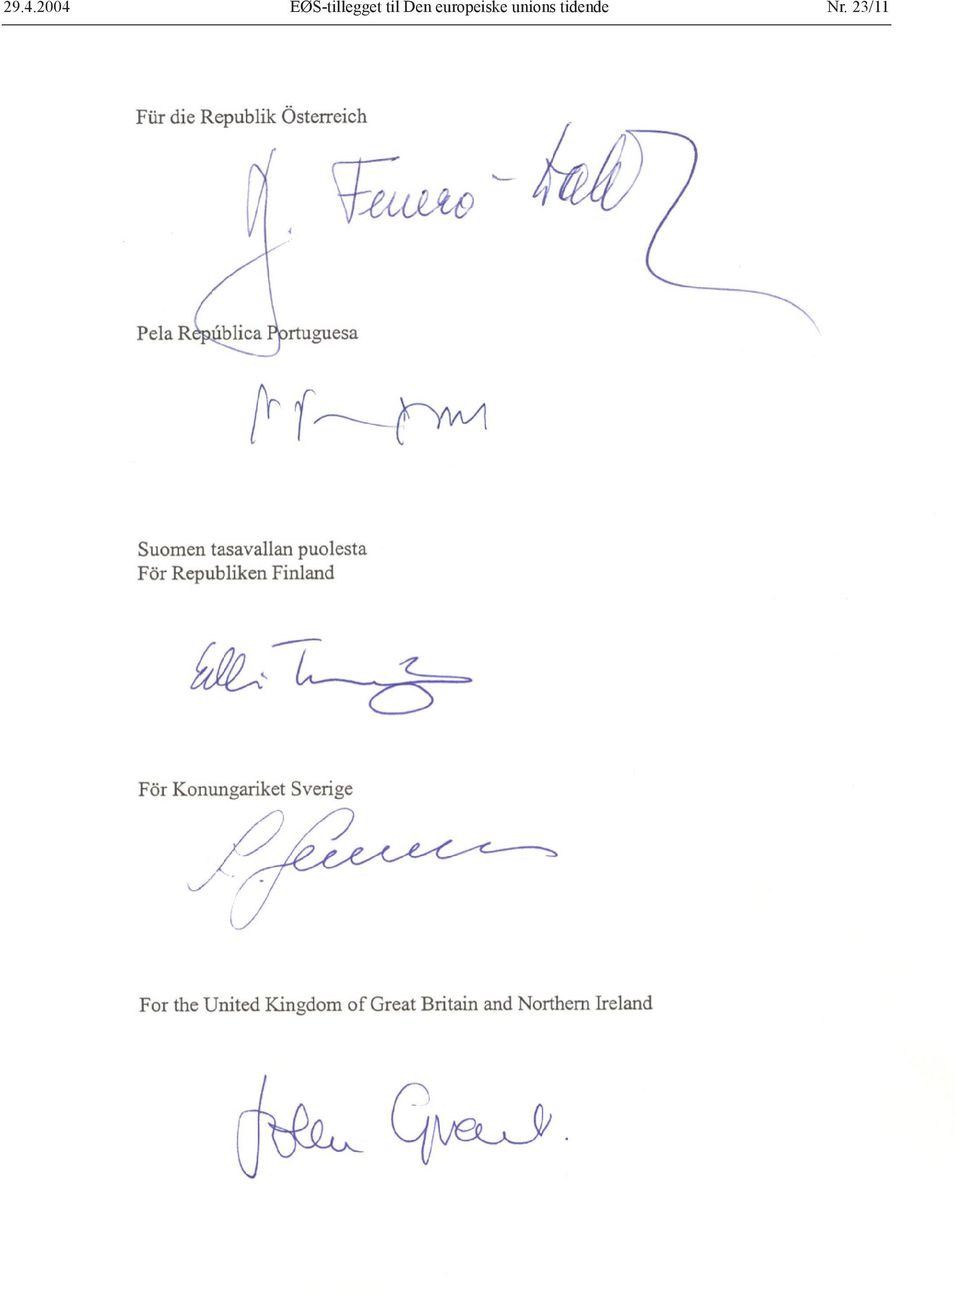 29.4.2004 EØS-tillegget til Den europeiske unions tidende Nr. 23/11
Für die Republik Österreich
Ferrero-
Pela República Portuguesa
Suomen tasavallan puolesta
För Republiken Finland
För Konungariket Sverige
For the United Kingdom of Great Britain and Northern Ireland
John Grant.